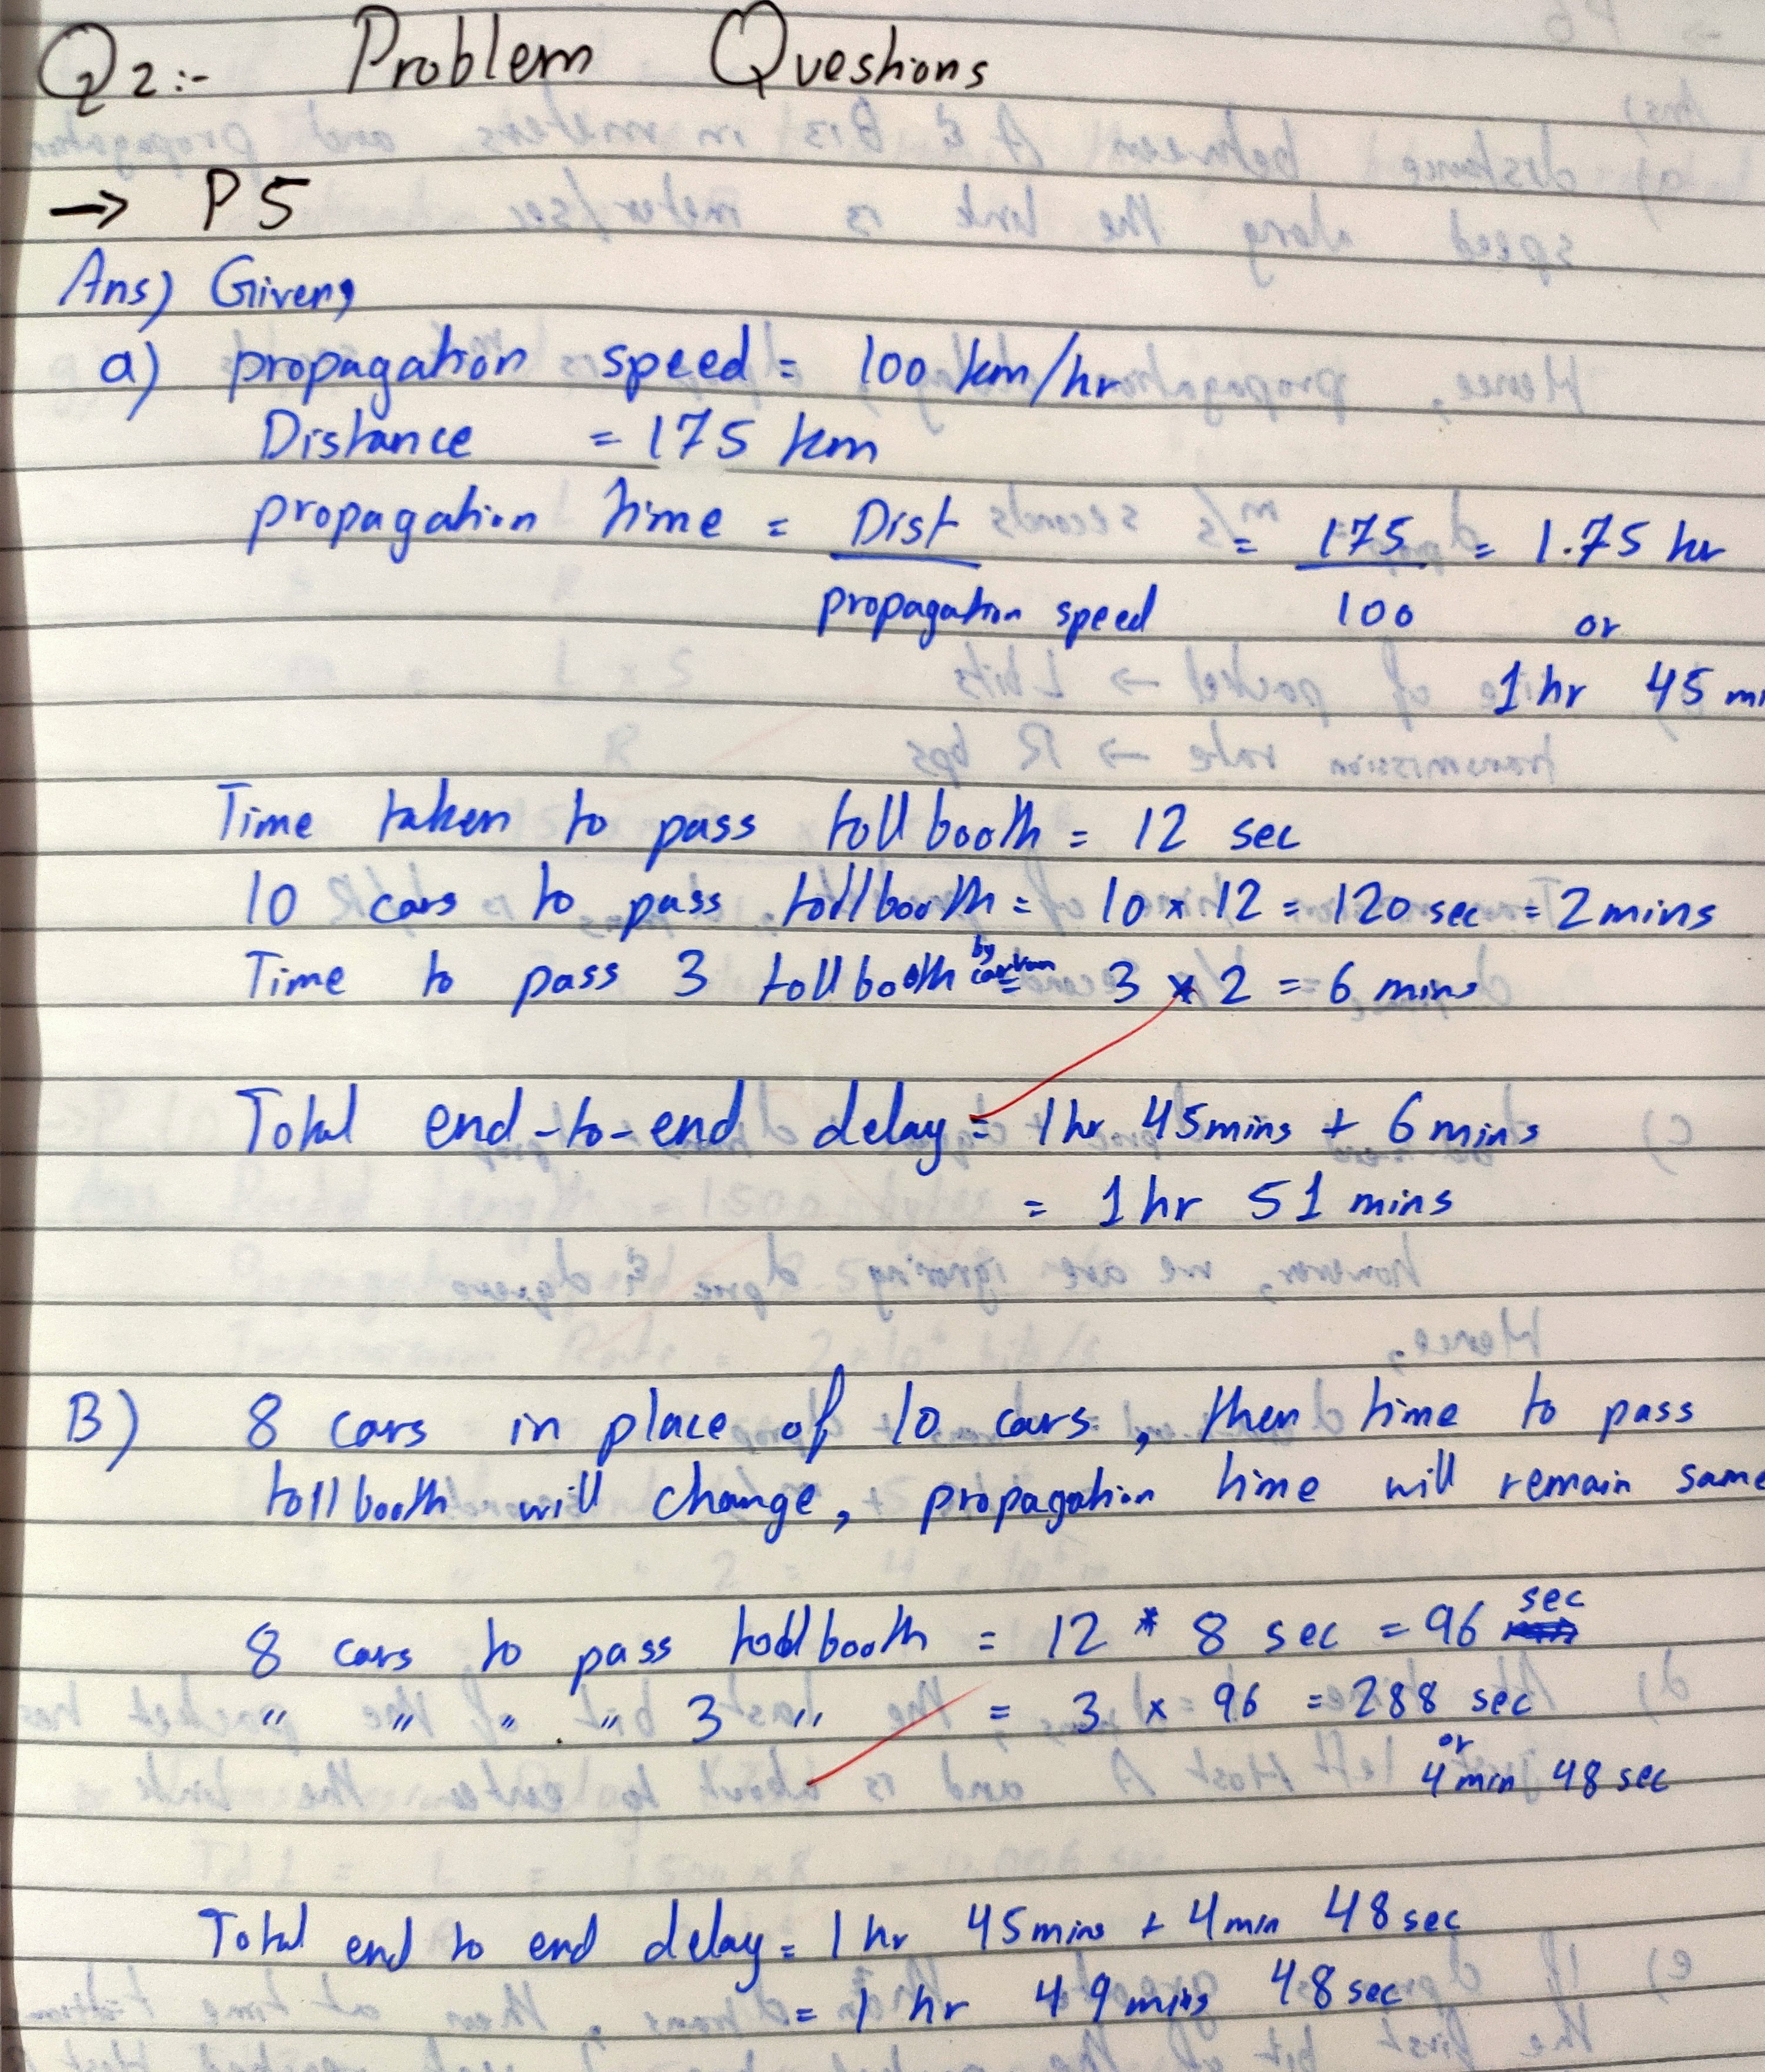 Q2:- Problem Questions
→ P5
Ans) Given,
a) propagation speed = 100 km/hr
Distance = 175 km
propagation time = Dist / propagation speed = 175 / 100 = 1.75 hr
or
1 hr 45 mi
Time taken to pass tollbooth = 12 sec
10 cars to pass tollbooth = 10 * 12 = 120 sec = 2 mins
Time to pass 3 tollbooth by = 3 * 2 = 6 mins
Total end-to-end delay = 1 hr 45 mins + 6 mins
= 1 hr 51 mins
B) 8 cars in place of 10 cars, then time to pass
tollbooth will change, propagation time will remain same
8 cars to pass tollbooth = 12 * 8 sec = 96 sec
" " " " 3 " = 3 x 96 = 288 sec
or
4 min 48 sec
Total end to end delay = 1 hr 45 mins + 4 min 48 sec
= 1 hr 49 mins 48 sec